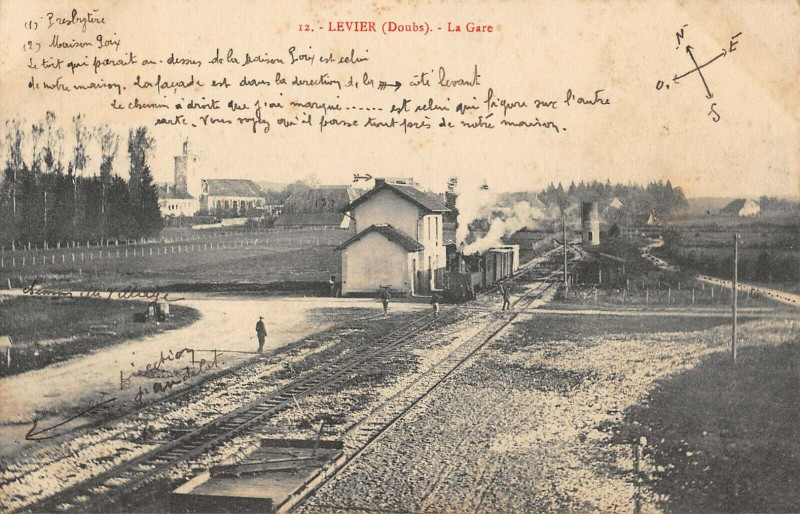 12. - LEVIER (Doubs). - La Gare
(1) Presbytère
(2) Maison Goix
Le toit qui parait au-dessus de la maison Goix est celui
de notre maison. La façade est dans la direction de la ⟶ côté levant
Le chemin à droite que j'ai marqué ...... est celui qui figure sur l'autre
carte. Vous voyez qu'il passe tout près de notre maison.
N
E
O.
S
chemin du village
Direction